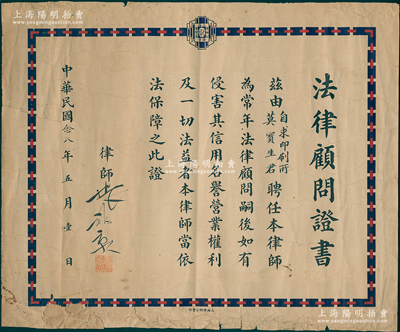 上海陽明拍賣
www.yangmingauction.com
法律顧問證書
茲由自求印刷所莫寶生君聘任本律師
為常年法律顧問嗣後如有
侵害其信用名譽營業權利
及一切法益者本律師當依
法保障之此證
律師
中華民國念八年五月壹日